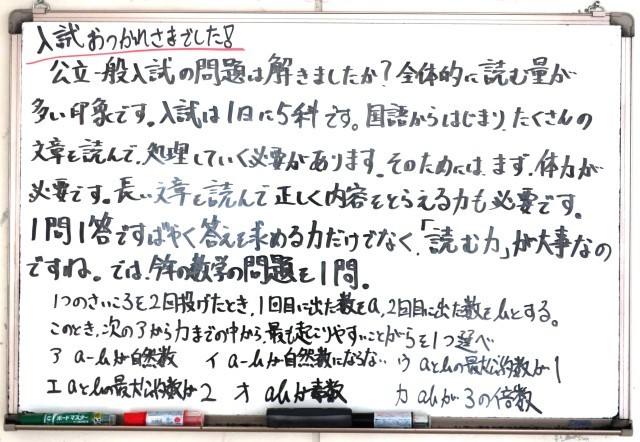 入試おつかれさまでした!
公立一般入試の問題は解きましたか?全体的に読む量が
多い印象です。入試は1日に5科です。国語からはじまり、たくさんの
文章を読んで、処理していく必要があります。そのためには、まず、体力が
必要です。長い文章を読んで正しく内容をとらえる力も必要です。
1問1答ですばやく答えを求める力だけでなく、「読む力」が大事なの
ですね。では、今年の数学の問題を1問。
1つのさいころを2回投げたとき、1回目に出た数をa、2回目に出た数をbとする。
このとき、次のアからカまでの中から、最も起こりやすいことがらを1つ選べ
ア a-bが自然数 イ a-bが自然数にならない ウ aとbの最大公約数が1
エ aとbの最大公約数が2 オ abが素数 カ abが3の倍数
ボードマスター